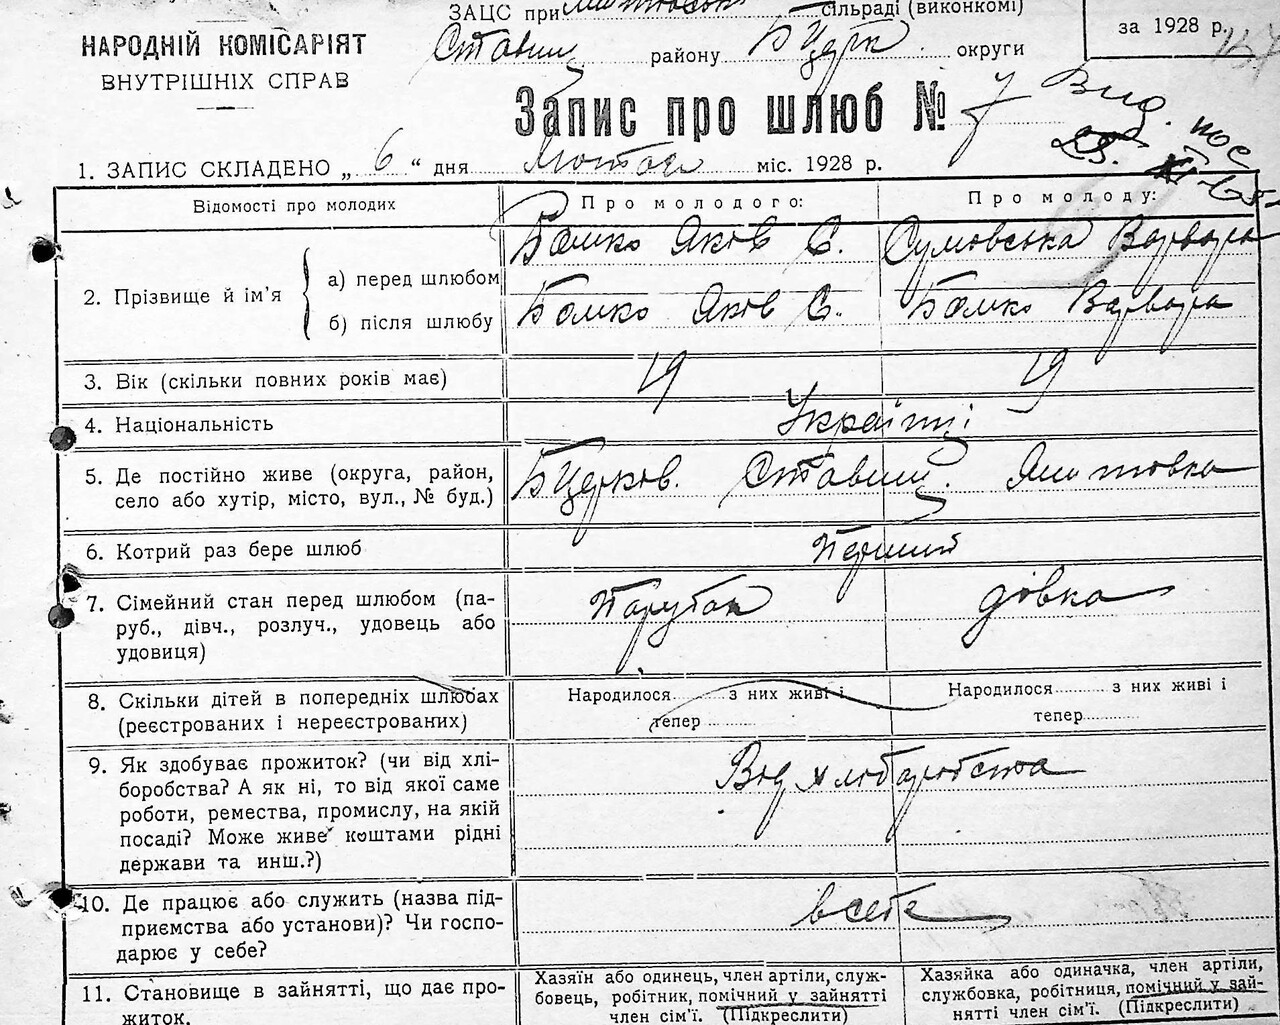 ЗАЦС при сільраді (виконкомі)
НАРОДНІЙ КОМІСАРІЯТ
ВНУТРІШНІХ СПРАВ
Ставищ району БЦерк. округи
за 1928 р.
Запис про шлюб № 7
Вид. пос
1. ЗАПИС СКЛАДЕНО „ 6 “ дня Лютого міс. 1928 р.
Відомості про молодих
Про молодого:
Про молоду:
2. Прізвище й ім'я
а) перед шлюбом
Бомко Яков С. Сумовська Варвара
б) після шлюбу
Бомко Яков С. Бомко Варвара
3. Вік (скільки повних років має) 19 19
4. Національність Українці
5. Де постійно живе (округа, район,
село або хутір, місто, вул., № буд.)
БЦерков. Ставищ.
6. Котрий раз бере шлюб Перший
7. Сімейний стан перед шлюбом (па-
руб., дівч., розлуч., удовець або
удовиця)
Парубок дівка
8. Скільки дітей в попередніх шлюбах
(реєстрованих і нереєстрованих)
Народилося з них живі і
тепер
Народилося з них живі і
тепер
9. Як здобуває прожиток? (чи від хлі-
боробства? А як ні, то від якої саме
роботи, ремества, промислу, на якій
посаді? Може живе коштами рідні
держави та инш.?)
Від хлюборобства
10. Де працює або служить (назва під-
приємства або установи)? Чи госпо-
дарює у себе?
в себе
11. Становище в зайнятті, що дає про-
житок.
Хазяїн або одинець, член артіли, служ-
бовець, робітник, помічний у зайнятті
член сім'ї. (Підкреслити)
Хазяйка або одиначка, член артіли,
службовка, робітниця, помічний у зай-
нятті член сім'ї. (Підкреслити)